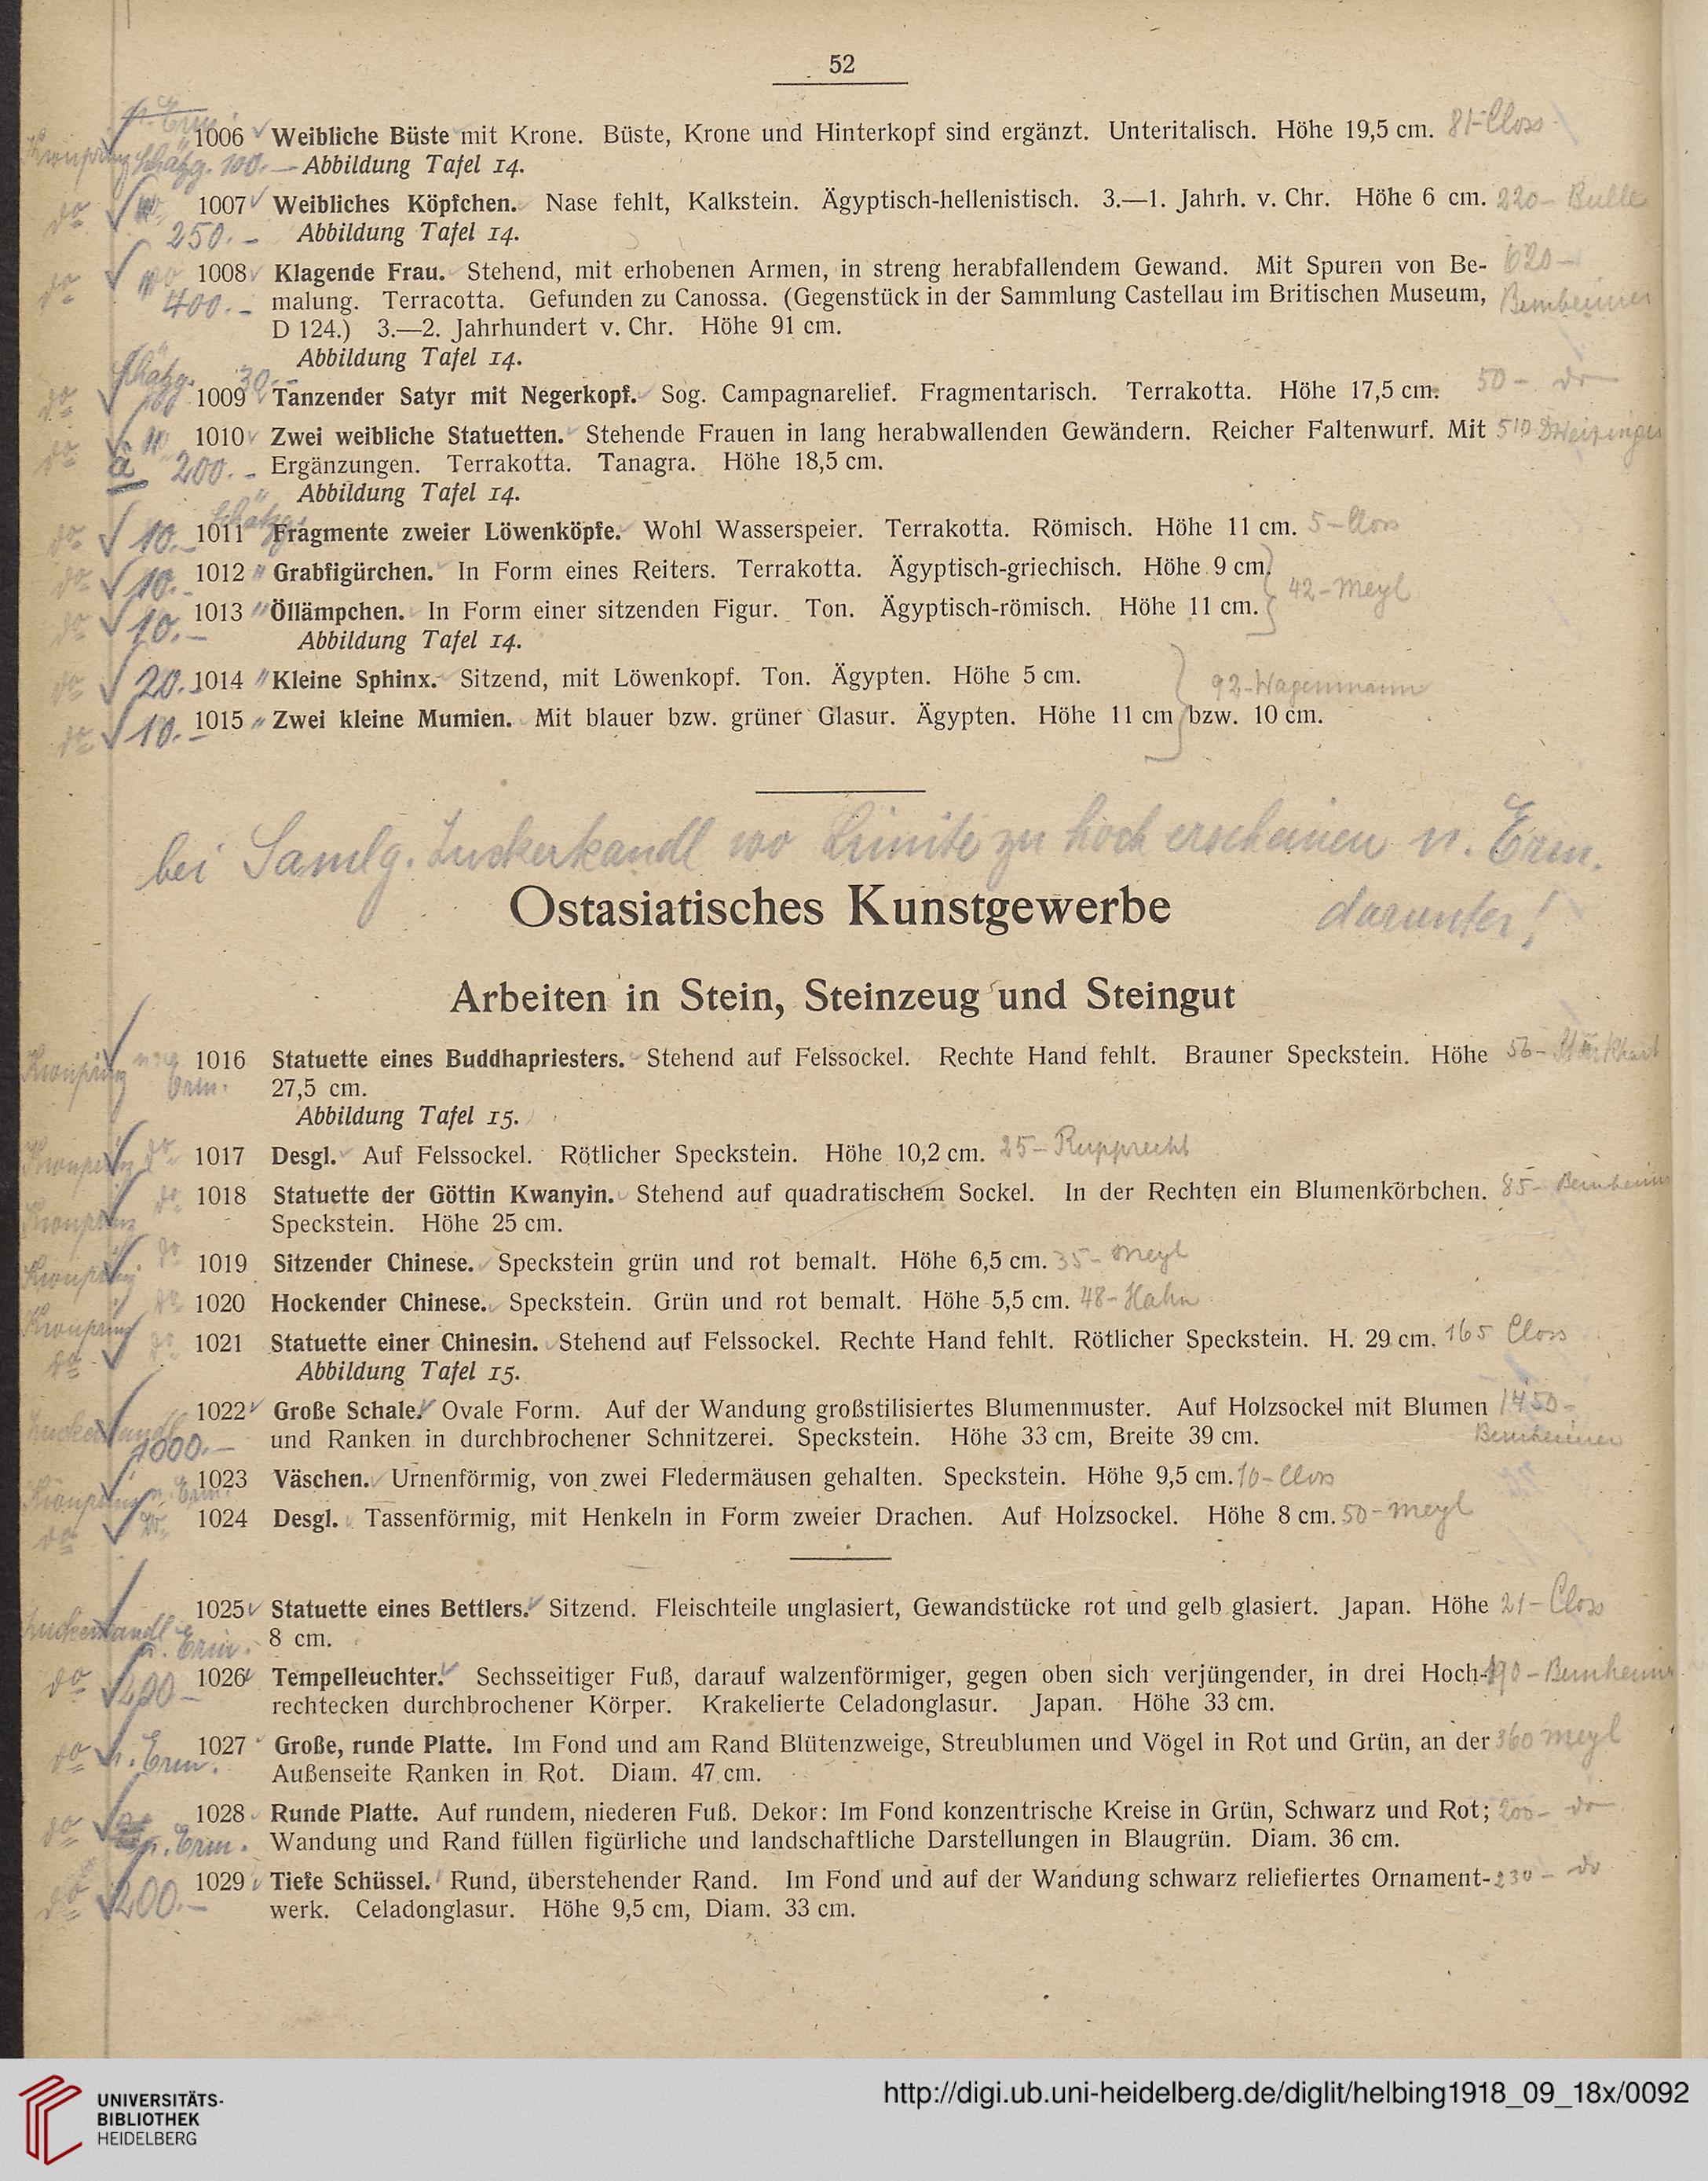 52
1006 Weibliche Büste mit Krone. Büste, Krone und Hinterkopf sind ergänzt. Unteritalisch. Höhe 19,5 cm. 81- Closs
Schätzg. 100.— Abbildung Tafel 14.
1007 Weibliches Köpfchen. Nase fehlt, Kalkstein. Ägyptisch-hellenistisch. 3.—1. Jahrh. v. Chr. Höhe 6 cm. 220- Bulle
250.- Abbildung Tafel 14.
1008 Klagende Frau. Stehend, mit erhobenen Armen, in streng herabfallendem Gewand. Mit Spuren von Be- 620-
400.- malung. Terracotta. Gefunden zu Canossa. (Gegenstück in der Sammlung Castellau im Britischen Museum, Bernheimer
D 124.) 3.—2. Jahrhundert v. Chr. Höhe 91 cm.
Abbildung Tafel 14.
Schätzg. 30.-
1009 Tanzender Satyr mit Negerkopf. Sog. Campagnarelief. Fragmentarisch. Terrakotta. Höhe 17,5 cm. 50- do
1010 Zwei weibliche Statuetten. Stehende Frauen in lang herabwallenden Gewändern. Reicher Faltenwurf. Mit 510
à 200.- Ergänzungen. Terrakotta. Tanagra. Höhe 18,5 cm.
Abbildung Tafel 14.
do 10.- 1011 Fragmente zweier Löwenköpfe. Wohl Wasserspeier. Terrakotta. Römisch. Höhe 11 cm. 5- Closs
do 10.- 1012 Grabfigürchen. In Form eines Reiters. Terrakotta. Ägyptisch-griechisch. Höhe 9 cm.
42- Meyl
do 10.- 1013 Öllämpchen. In Form einer sitzenden Figur. Ton. Ägyptisch-römisch. Höhe 11 cm.
Abbildung Tafel 14.
do 20.- 1014 Kleine Sphinx. Sitzend, mit Löwenkopf. Ton. Ägypten. Höhe 5 cm. 92- Wagenmann
do 10.- 1015 Zwei kleine Mumien. Mit blauer bzw. grüner Glasur. Ägypten. Höhe 11 cm bzw. 10 cm.
bei Samlg. Zuckerkandl wo Limite zu hoch erscheinen n. Erm.
darunter!
Ostasiatisches Kunstgewerbe
Arbeiten in Stein, Steinzeug und Steingut
Kronprinz 1016 Statuette eines Buddhapriesters. Stehend auf Felssockel. Rechte Hand fehlt. Brauner Speckstein. Höhe 56-
Erm. 27,5 cm.
Abbildung Tafel 15.
Kronprinz do 1017 Desgl. Auf Felssockel. Rötlicher Speckstein. Höhe 10,2 cm. 25- Rupprecht
Kronprinz do 1018 Statuette der Göttin Kwanyin. Stehend auf quadratischem Sockel. In der Rechten ein Blumenkörbchen. 85- Bernheimer
Speckstein. Höhe 25 cm.
Kronprinz do 1019 Sitzender Chinese. Speckstein grün und rot bemalt. Höhe 6,5 cm. 35- Meyl
Kronprinz do 1020 Hockender Chinese. Speckstein. Grün und rot bemalt. Höhe 5,5 cm. 48- Hahn
do do 1021 Statuette einer Chinesin. Stehend auf Felssockel. Rechte Hand fehlt. Rötlicher Speckstein. H. 29 cm. 165 Closs
Abbildung Tafel 15.
Zuckerkandl 1022 Große Schale. Ovale Form. Auf der Wandung großstilisiertes Blumenmuster. Auf Holzsockel mit Blumen 1450-
1000.- und Ranken in durchbrochener Schnitzerei. Speckstein. Höhe 33 cm, Breite 39 cm. Bernheimer
Kronprinz n. Erm. 1023 Väschen. Urnenförmig, von zwei Fledermäusen gehalten. Speckstein. Höhe 9,5 cm. 10- Closs
do do 1024 Desgl. Tassenförmig, mit Henkeln in Form zweier Drachen. Auf Holzsockel. Höhe 8 cm. 50- Meyl
1025 Statuette eines Bettlers. Sitzend. Fleischteile unglasiert, Gewandstücke rot und gelb glasiert. Japan. Höhe 21- Closs
Zuckerkandl n. Erm. 8 cm.
do 1026 Tempelleuchter. Sechsseitiger Fuß, darauf walzenförmiger, gegen oben sich verjüngender, in drei Hoch- Bernheimer
rechtecken durchbrochener Körper. Krakelierte Celadonglasur. Japan. Höhe 33 cm.
do n. Erm. 1027 Große, runde Platte. Im Fond und am Rand Blütenzweige, Streublumen und Vögel in Rot und Grün, an der 360 Meyl
Außenseite Ranken in Rot. Diam. 47 cm.
do 1028 Runde Platte. Auf rundem, niederen Fuß. Dekor: Im Fond konzentrische Kreise in Grün, Schwarz und Rot; 200- do
n. Erm. Wandung und Rand füllen figürliche und landschaftliche Darstellungen in Blaugrün. Diam. 36 cm.
do 1029 Tiefe Schüssel. Rund, überstehender Rand. Im Fond und auf der Wandung schwarz reliefiertes Ornament- 230- do
200.- werk. Celadonglasur. Höhe 9,5 cm, Diam. 33 cm.
UNIVERSITÄTS-
BIBLIOTHEK
HEIDELBERG
http://digi.ub.uni-heidelberg.de/diglit/helbing1918_09_18x/0092